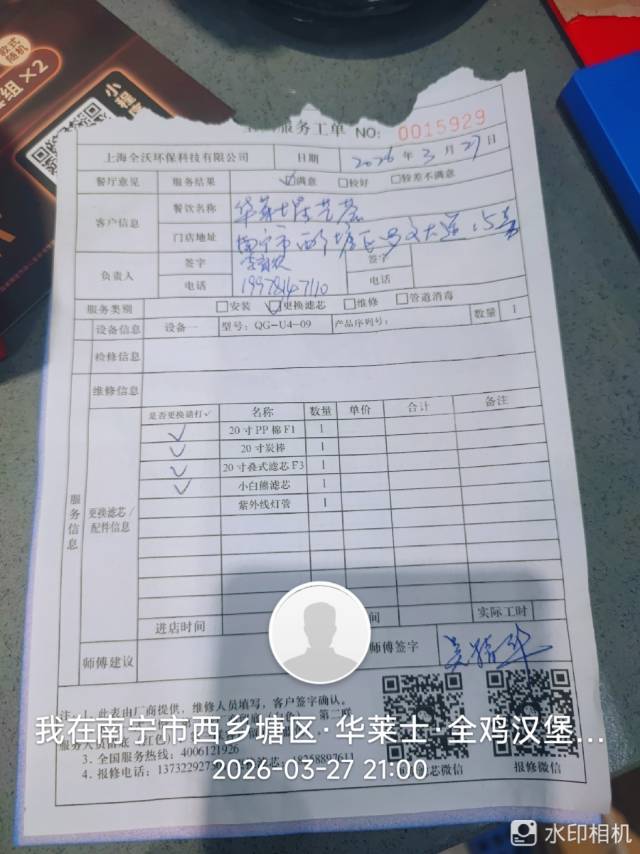 款式随机
组 ×2
小程
服务工单 NO: 0015929
上海全沃环保科技有限公司 日期 2026 年 3 月 27 日
餐厅意见 服务结果 ☑满意 □较好 □较差不满意
客户信息 餐饮名称 华莱士
门店地址 南宁市西乡塘区 大道 15
负责人 签字 签字
电话 19978147110 电话
服务类别 □安装 ☑更换滤芯 □维修 □管道消毒
设备信息 设备一 型号: QG-U4-09 产品序列号: 数量 1
检修信息
维修信息
服务信息 更换滤芯/配件信息
是否更换请打✓ 名称 数量 单价 合计 备注
✓ 20寸PP棉F1 1
✓ 20寸炭棒 1
✓ 20寸叠式滤芯F3 1
✓ 小白熊滤芯 1
紫外线灯管 1
进店时间 间 实际工时
师傅建议 师傅签字
注: 1. 此表由厂商提供, 维修人员填写, 客户签字确认。
第二联
3. 全国服务热线: 4006121926
4. 报修电话: 1373229273 18258897611
芯微信 报修微信
我在南宁市西乡塘区·华莱士·全鸡汉堡...
2026-03-27 21:00
水印相机